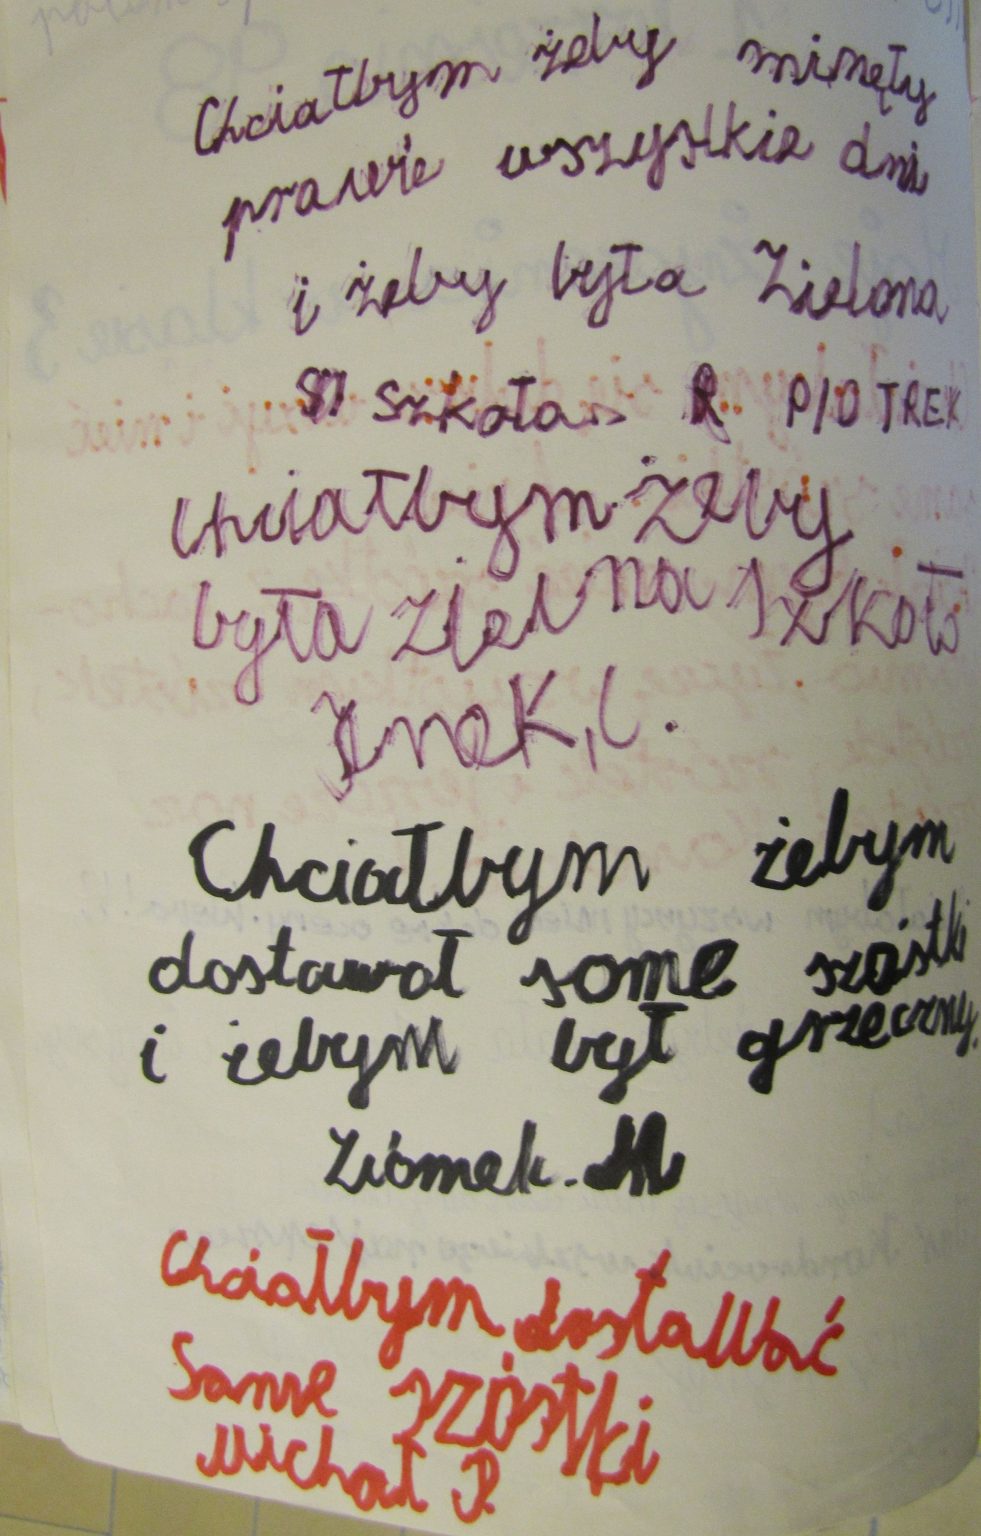 Chciałbym żeby minęły
prawie wszystkie dni
i żeby była Zielona
szkoła R PIOTREK
Chciałbym żeby
była zielna szkoł
Chciałbym żebym
dostawał same szóstki
i żebym był grzeczny.
Ziomek. M
Chciałbym dostawać
Same szóstki
Michał P.